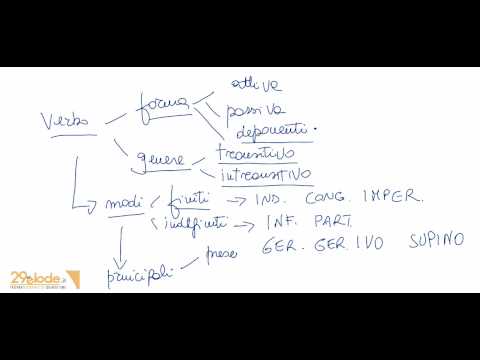 attiva
forma
passiva
Verbo
deponenti.
genere
transitivo
intransitivo
modi finiti → IND. CONG. IMPER.
indefiniti → INF. PART.
GER. GERIVO SUPINO
principali prese
29elode.it